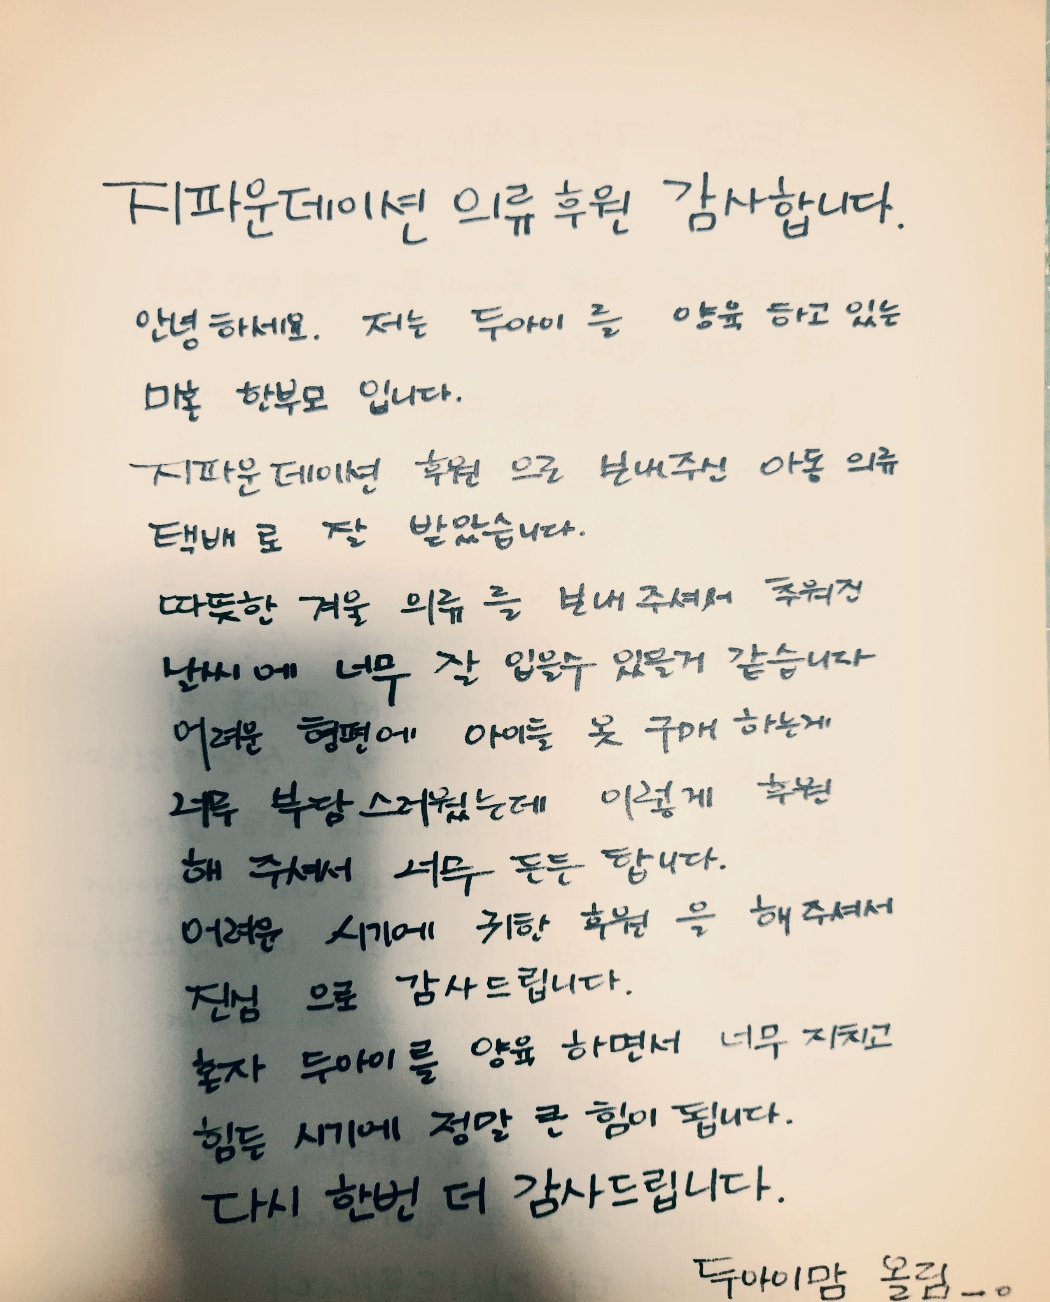 지파운데이션 의류 후원 감사합니다.
안녕하세요. 저는 두아이를 양육 하고 있는
미혼 한부모 입니다.
지파운데이션 후원 으로 보내주신 아동 의류
택배로 잘 받았습니다.
따뜻한 겨울 의류를 보내주셔서 추워진
날씨에 너무 잘 입을수 있을거 같습니다
어려운 형편에 아이들 옷 구매 하는게
너무 부담스러웠는데 이렇게 후원
해 주셔서 너무 든든 합니다.
어려운 시기에 귀한 후원을 해주셔서
진심 으로 감사드립니다.
혼자 두아이를 양육 하면서 너무 지치고
힘든 시기에 정말 큰 힘이 됩니다.
다시 한번 더 감사드립니다.
두아이맘 올림_。